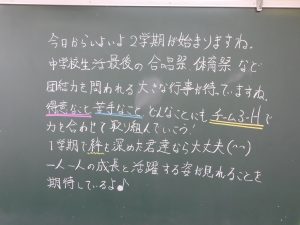 今日からいよいよ2学期が始まりますね。
中学校生活最後の合唱祭、体育祭など
団結力を問われる大きな行事が待っていますね。
得意なこと 苦手なこと どんなことにも、チーム3-Hで
力を合わせて取り組んでいこう!
1学期で絆を深めた君達なら大丈夫(^^)
一人一人の成長と活躍する姿が見れることを
期待しているよ♪